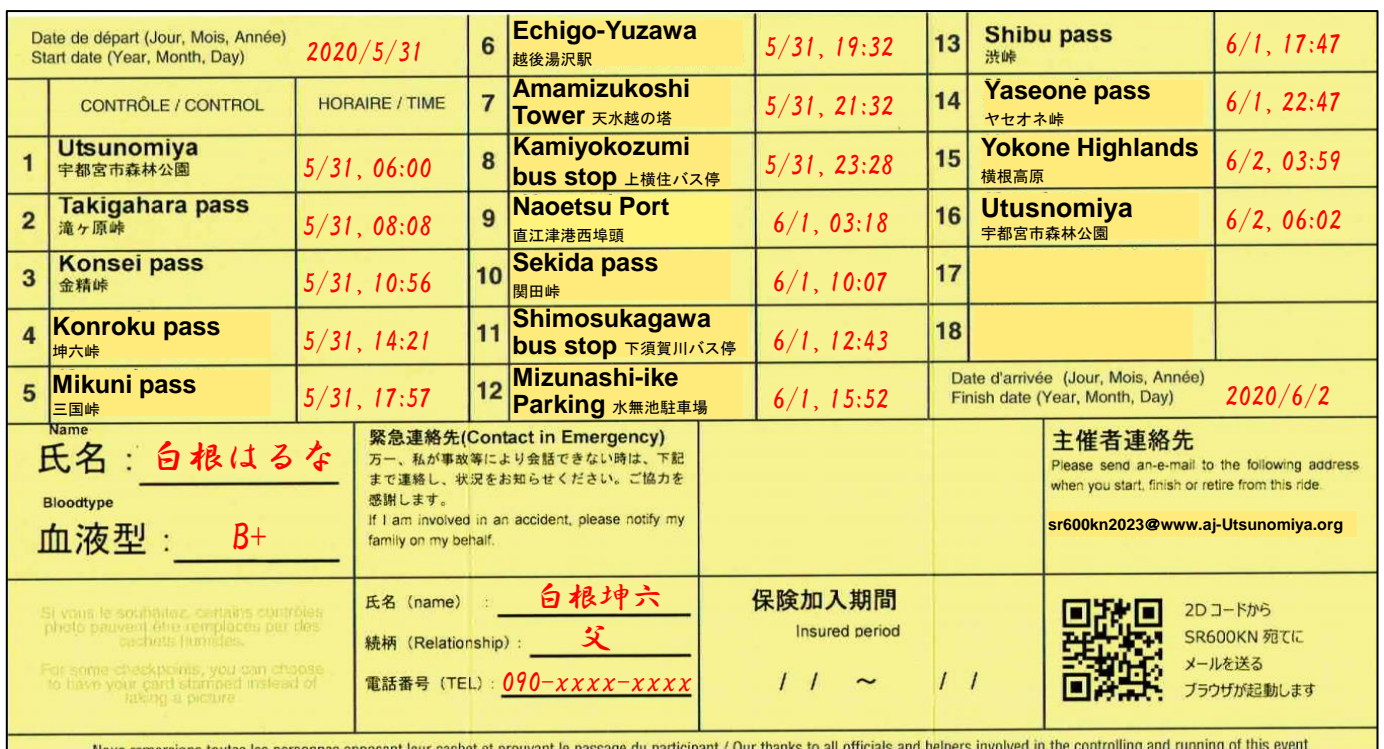 Date de départ (Jour, Mois, Année)
Start date (Year, Month, Day)
2020/5/31
CONTRÔLE / CONTROL
HORAIRE / TIME
1
Utsunomiya
宇都宮市森林公園
5/31, 06:00
2
Takigahara pass
滝ヶ原峠
5/31, 08:08
3
Konsei pass
金精峠
5/31, 10:56
4
Konroku pass
坤六峠
5/31, 14:21
5
Mikuni pass
三国峠
5/31, 17:57
6
Echigo-Yuzawa
越後湯沢駅
5/31, 19:32
7
Amamizukoshi
Tower 天水越の塔
5/31, 21:32
8
Kamiyokozumi
bus stop 上横住バス停
5/31, 23:28
9
Naoetsu Port
直江津港西埠頭
6/1, 03:18
10
Sekida pass
関田峠
6/1, 10:07
11
Shimosukagawa
bus stop 下須賀川バス停
6/1, 12:43
12
Mizunashi-ike
Parking 水無池駐車場
6/1, 15:52
13
Shibu pass
渋峠
6/1, 17:47
14
Yaseone pass
ヤセオネ峠
6/1, 22:47
15
Yokone Highlands
横根高原
6/2, 03:59
16
Utusnomiya
宇都宮市森林公園
6/2, 06:02
17
18
Date d'arrivée (Jour, Mois, Année)
Finish date (Year, Month, Day)
2020/6/2
Name
氏名 : 白根はるな
Bloodtype
血液型 : B+
緊急連絡先(Contact in Emergency)
万一、私が事故等により会話できない時は、下記
まで連絡し、状況をお知らせください。ご協力を
感謝します。
If I am involved in an accident, please notify my
family on my behalf.
主催者連絡先
Please send an-e-mail to the following address
when you start, finish or retire from this ride.
sr600kn2023@www.aj-Utsunomiya.org
Si vous le souhaitez, certains contrôles
photo peuvent être remplacés par des
cachets humides.
For some checkpoints, you can choose
to have your card stamped instead of
taking a picture.
氏名 (name) : 白根坤六
続柄 (Relationship) : 父
電話番号 (TEL) : 090-xxxx-xxxx
保険加入期間
Insured period
/ / ～ / /
2Dコードから
SR600KN 宛てに
メールを送る
ブラウザが起動します
Nous remercions toutes les personnes apposant leur cachet et prouvant le passage du participant / Our thanks to all officials and helpers involved in the controlling and running of this event